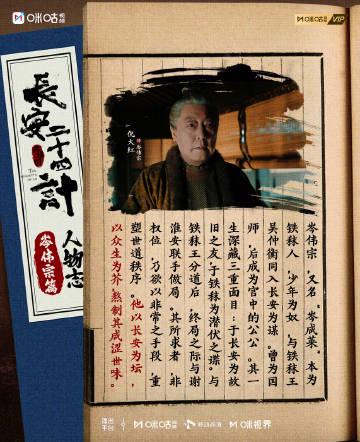 咪咕视频
咪咕视频 VIP
長安二十四計
人物志
岑伟宗篇
倪大红
饰 岑伟宗
岑伟宗，又名，岑咸莱。本为
铁秣人，少年为奴，与铁秣王
吴仲衡同入长安为谋。曾为国
师，后成为宫中的公公。其一
生深藏三重面目：于长安为故
旧之友；于铁秣为潜伏之谍；与
铁秣王分道后，终局之际与谢
淮安联手做局。其所求者，非
权位，乃欲以非常之手段，重
塑世道秩序。他以长安为坛，
以众生为芥，熬制其咸涩世味。
咪咕视频
咪咕视界